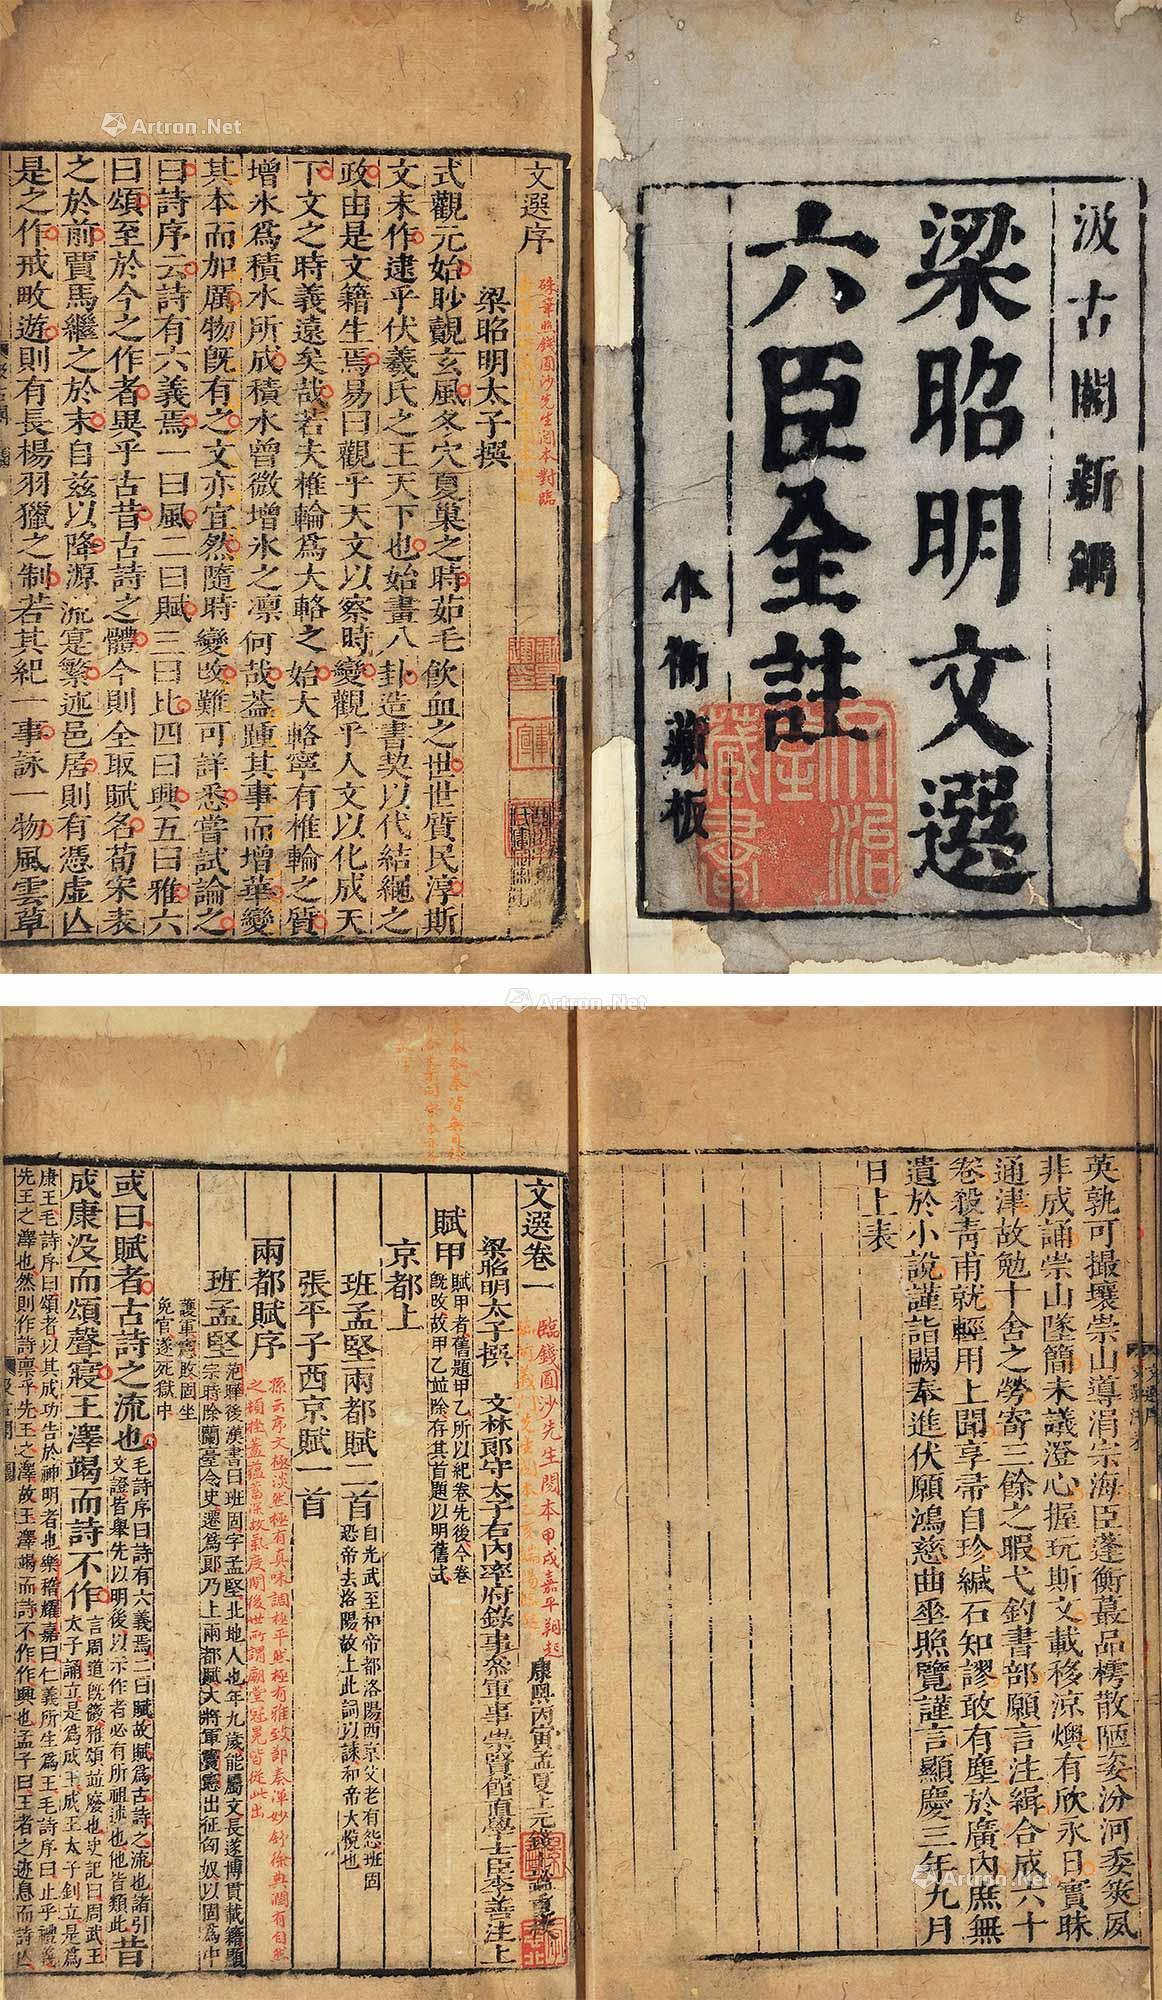 汲古閣新鐫
梁昭明文選
六臣全註
本衙藏板
文選序
硃筆照錢圓沙先生閱本對臨
梁昭明太子撰
式觀元始眇覿玄風冬穴夏巢之時茹毛飲血之世世質民淳斯
文未作逮乎伏羲氏之王天下也始畫八卦造書契以代結繩之
政由是文籍生焉易曰觀乎天文以察時變觀乎人文以化成天
下文之時義遠矣哉若夫椎輪爲大輅之始大輅寧有椎輪之質
增氷爲積水所成積水曾微增氷之凛何哉蓋踵其事而增華變
其本而加厲物旣有之文亦宜然隨時變改難可詳悉嘗試論之
曰詩序云詩有六義焉一曰風二曰賦三曰比四曰興五曰雅六
曰頌至於今之作者異乎古昔古詩之體今則全取賦名荀宋表
之於前賈馬繼之於末自茲以降源流寔繁述邑居則有憑虛亾
是之作戒畋遊則有長楊羽獵之制若其紀一事詠一物風雲草
英孰可撮壤崇山導涓宗海臣蓬衡蕞品樗散陋姿汾河委筴夙
非成誦崇山墜簡未議澄心握玩斯文載移涼燠有欣永日實昧
通津故勉十舍之勞寄三餘之暇弋釣書部願言注緝合成六十
卷殺青甫就輕用上聞享帚自珍緘石知謬敢有塵於廣內庶無
遺於小說謹詣闕奉進伏願鴻慈曲垂照覽謹言顯慶三年九月
日上表
文選卷一
臨錢圓沙先生閱本甲戌嘉平翔起
梁昭明太子撰 文林郎守太子右內率府錄事參軍事崇賢館直學士臣李善注上
賦甲 賦甲者舊題甲乙所以紀卷先後今卷
旣改故甲乙並除存其首題以明舊式
京都上
班孟堅兩都賦二首 自光武至和帝都洛陽西京父老有怨班固
恐帝去洛陽故上此詞以諫和帝大悅也
張平子西京賦一首
兩都賦序
班孟堅 范曄後漢書曰班固字孟堅北地人也年九歲能屬文長遂博貫載籍顯
宗時除蘭臺令史遷爲郞乃上兩都賦大將軍竇憲出征匈奴以固爲中
護軍憲敗固坐
免官遂死獄中
或曰賦者古詩之流也 毛詩序曰詩有六義焉二曰賦故賦爲古詩之流也諸引
文證皆舉先以明後以示作者必有所祖述也他皆類此 昔
成康没而頌聲寢王澤竭而詩不作 言周道旣微雅頌並廢也史記曰周武王
太子誦立是爲成王成王太子釗立是爲
康王毛詩序曰頌者以其成功告於神明者也樂稽耀嘉曰仁義所生爲王毛詩序曰止乎禮義
先王之澤也然則作詩稟乎先王之澤故王澤竭而詩不作作興也孟子曰王者之迹息而詩亾